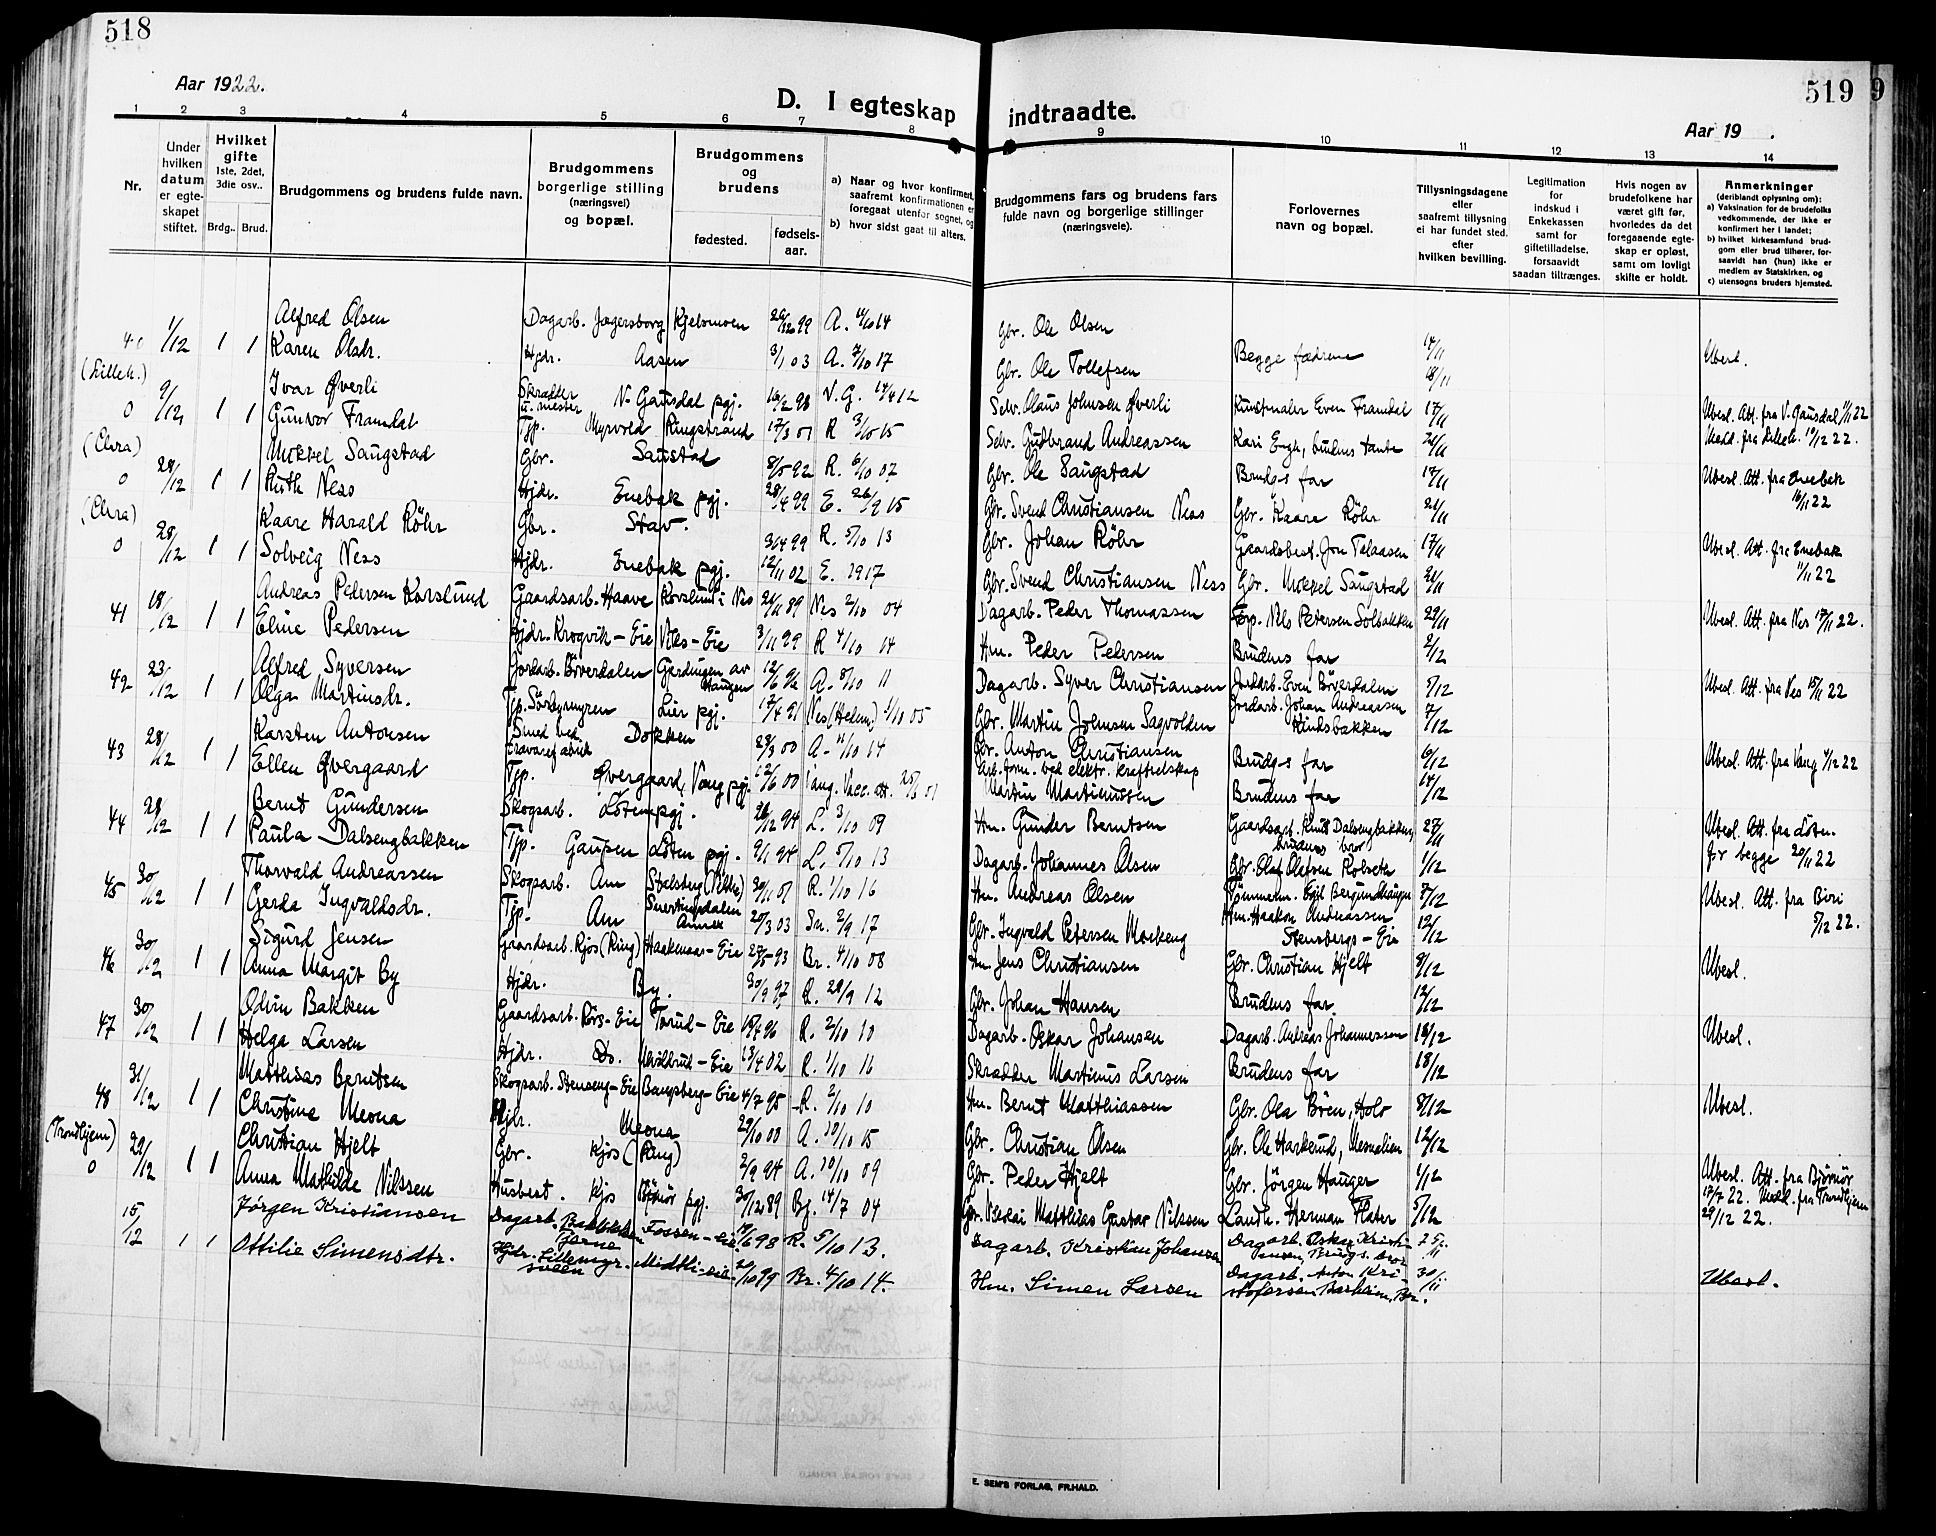 518
519
9
Aar 1922.
D. I egteskap indtraadte.
Aar 19 .
1 2 3 4 5 6 7 8 9 10 11 12 13 14
Nr.
Under hvilken datum er egteskapet stiftet.
Hvilket gifte 1ste, 2det, 3die osv..
Brdg.. Brud.
Brudgommens og brudens fulde navn.
Brudgommens borgerlige stilling (næringsvei) og bopæl.
Brudgommens og brudens
fødested.
fødsels-aar.
a) Naar og hvor konfirmert, saafremt konfirmationen er foregaat utenfor sognet, og
b) hvor sidst gaat til alters.
Brudgommens fars og brudens fars fulde navn og borgerlige stillinger (næringsveie).
Forlovernes navn og bopæl.
Tillysningsdagene eller saafremt tillysning ei har fundet sted, efter hvilken bevilling.
Legitimation for indskud i Enkekassen samt for giftetilladelse, forsaavidt saadan tiltrænges.
Hvis nogen av brudefolkene har været gift før, hvorledes da det foregaaende egteskap er opløst, samt om lovlig skifte er holdt.
Anmerkninger (deriblandt oplysning om):
a) Vaksination for de brudefolks vedkommende, der ikke er konfirmert her i landet;
b) hvilket kirkesamfund brudgom eller brud tilhører, forsaavidt han (hun) ikke er medlem av Statskirken, og
c) utensogns bruders hjemsted.
1/12 1 1 Alfred Olsen Dagarb. Jægersborg Kjelsmoen 99 A. 4/10 14 Gbr. Ole Olsen Begge fædrene 14/11 Ubesl.
Karen Olsdr. Hjdr. Aasen 3/1 03 A. 7/10 17 Gbr. Ole Tollefsen 18/11
(Lilleh.) 0 9/12 1 1 Ivar Øverli Skrædder u. mester N. Gausdal pgj. 16/2 98 V. G. 14/4 12 Selv. Olaus Johnsen Øverli Kunstmaler Even Framdal 17/11 Ubesl. Att. fra V. Gausdal 1/11 22
Gunvor Framdal Tjp. Myrvold Ringstrand 17/3 01 R 3/10 15 Selv. Gudbrand Andreassen Kari Engh, brudens tante 24/11 Meld. fra Lilleh. 19/12 22.
(Elvra) 0 28/12 1 1 Mikkel Saugstad Gbr. Saustad 8/5 92 R. 6/10 07 Gbr. Ole Saugstad Brud-s far 17/11 Ubesl. Att. fra Enebak
Ruth Ness Hjdr. Enebak pgj. 28/4 99 E. 26/9 15 Gbr. Svend Christiansen Ness Gbr. Kaare Röhr 24/11 16/11 22
(Elvra) 0 28/12 1 1 Kaare Harald Röhr Gbr. Stav. 3/4 99 R. 5/10 13 Gbr. Johan Röhr Gaardsbest. Jon Telaasen 17/11 Ubesl. Att. fra Enebak
Solveig Ness Hjdr. Enebak pgj. 12/11 02 E. 1917 Gbr. Svend Christiansen Ness Gbr. Mikkel Saugstad 24/11 11/11 22
41 18/12 1 1 Andreas Pedersen Korslund Gaardsarb. Haave Korslund i Nes 21/11 89 Nes 2/10 04 Dagarb. Peder Thomassen Forp. Nils Petersen Solbakken 29/11 Ubesl. Att. fra Nes 17/11 22.
Eline Pedersen Hjdr. Krogvik-Eie Veks-Eie 3/11 99 R 4/10 14 Hm. Peder Pedersen Brudens far 2/12
42 23/12 1 1 Alfred Syversen Jordarb. Böverdalen Gjerdingen av Haugen 12/6 96 A. 8/10 11 Dagarb. Syver Christiansen Jordarb. Even Böverdalen 5/12 Ubesl. Att. fra Nes 15/11 22
Olga Martinsdr. Tjp. Sörbymyren Lier pgj. 17/4 91 Nes (Helem) 1/10 05 Gbr. Martin Johnsen Sagvolden Jordarb. Johan Andreassen Klinksbakken 7/12
43 28/12 1 1 Karsten Antonsen Smed ved travarefabrik Dokken 29/3 00 A. 11/10 14 Gbr. Anton Christiansen Brud-s far 6/12 Ubesl. Att. fra Vang 4/12 22
Ellen Øvergaard Tjp. Øvergaard, Vang pgj. 12/6 00 Vang. Vacc. att. 25/8 01 Arb.form. ved elektr. kraftselskap Martin Martinussen Brudens far 14/12
44 28/12 1 1 Bernt Gundersen Skogsarb. Löten pgj. 26/12 94 L. 3/10 09 Hm. Gunder Berntsen Gaardsarb. Knut Dalsengbakken, brudens bror 27/11 Ubesl. Att. fra Löten
Paula Dalsengbakken Tjp. Gaupen Löten pgj. 9/1 94 L. 5/10 13 Dagarb. Johannes Olsen Gbr. Olaf Olefsen Robseth 1/12 for begge 20/11 22
45 30/12 1 1 Thorvald Andreassen Skogsarb. Am Stelsberg (Vekke) 30/11 01 R. 1/10 16 Hm. Andreas Olsen Tömmerm. Egil Bergundhaugen 7/12 Ubesl. Att. fra Biri
Gerda Ingvaldsdr. Tjp. Am Snertingdalen Annex 20/3 03 Sn. 2/9 17 Gbr. Ingvald Petersen Morkeng Hm. Haakon Andreassen Stensbergs-Eie 12/12 5/12 22.
46 30/12 1 1 Sigurd Jensen Gaardsarb. Kjos (Ring) Haakenaas-Eie 27/5 93 Br. 4/10 08 Hm. Jens Christiansen Gbr. Christian Hjelt 9/12 Ubesl.
Anna Margit By Hjdr. By. 30/9 97 R. 29/9 12 Gbr. Johan Hansen Brudens far. 12/12
47 30/12 1 1 Odvin Bakken Gaardsarb. Börs-Eie Torud-Eie 15/4 96 R. 2/10 10 Dagarb. Oskar Johansen Dagarb. Andreas Johannessen 16/12 Ubesl.
Helga Larsen Hjdr. Ds. -Eie 13/4 02 R. 1/10 16 Skrædder Martinus Larsen Brudens far 18/12
48 31/12 1 1 Matthias Berntsen Skogsarb. Stenseng-Eie Bangsberg-Eie 4/7 95 R. 2/10 10 Hm. Bernt Matthiassen Gbr. Ola Böen, Holo 8/12 Ubesl.
Christine Meona Hjdr. Meona 29/10 00 A. 10/10 15 Gbr. Christian Olsen Gbr. Ole Harkerud, Mesnalien 12/12
(Trondhjem) 0 29/12 1 1 Christian Hjelt Gbr. Kjos (Ring) 2/9 94 A. 10/10 09 Gbr. Peder Hjelt Gbr. Jörgen Hauger 1/12 Ubesl. Att. fra Bjørnör
Anna Mathilde Nilssen Husbest. Kjos Björnör pgj. 30/12 89 Bj. 14/7 04 Gbr. Nikolai Matthias Gustav Nilssen Landh. Herman Flater 5/12 17/7 22. Meld. fra Trondhjem 29/12 22.
15/12 1 1 Jørgen Kristiansen Dagarb. Fossen-eie 19/6 98 R. 5/10 13. Dagarb. Kristian Johansen Dagarb. Oskar Kristiansen, Brudgs. bror 25/11
Ottilie Simensdtr. Hjdr. Lillemyrsveen Midtli-eie 20/10 99 Br. 4/10 14. Hm. Simen Larsen Dagarb. Anton Kristofersen, Barheim, Br. 30/11 Ubesl.
E. SEM'S FORLAG, FR.HALD.